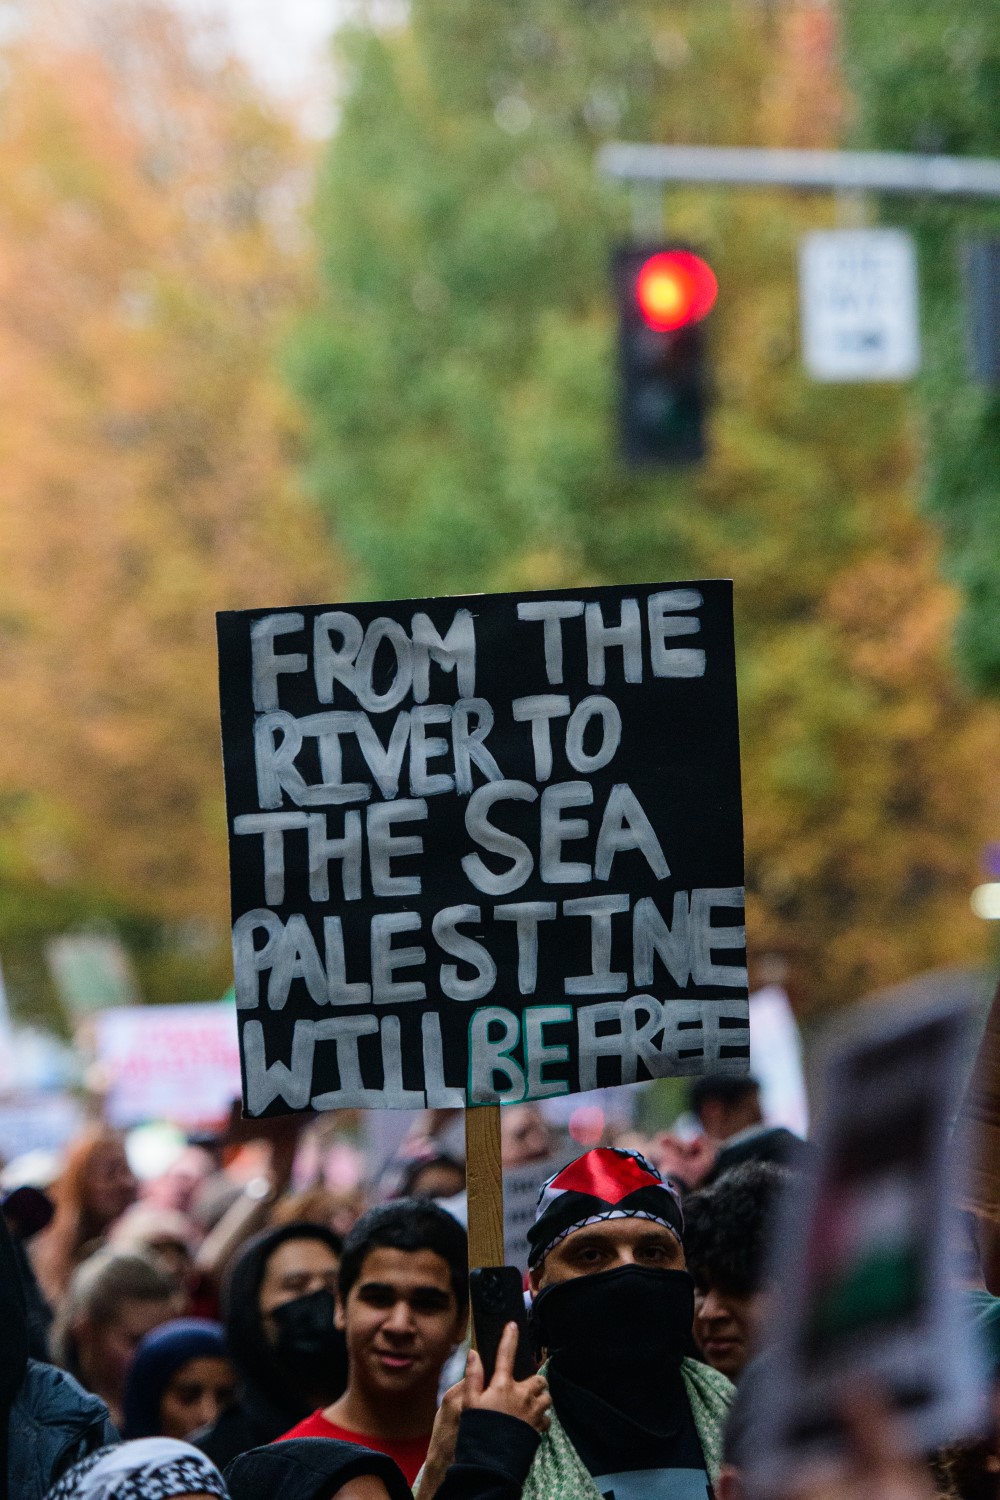 FROM THE
RIVER TO
THE SEA
PALESTINE
WILL BE FREE